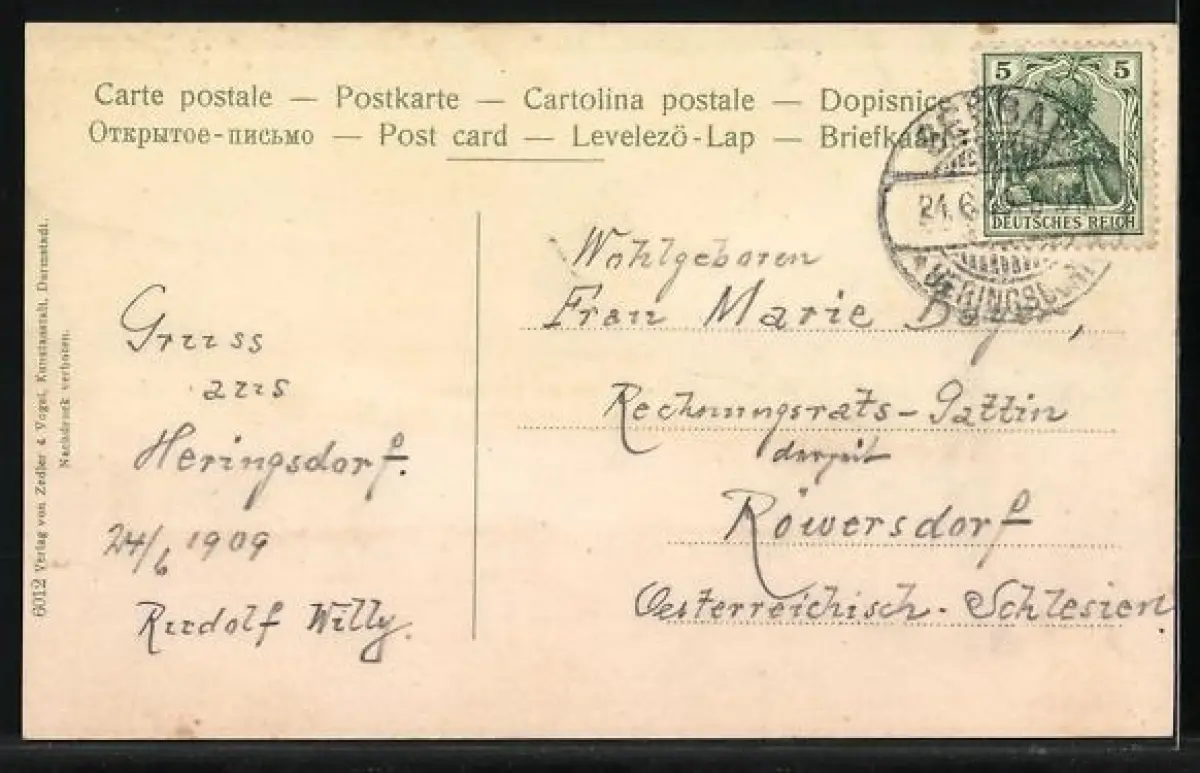 Carte postale — Postkarte — Cartolina postale — Dopisnice
Открытое-письмо — Post card — Levelező-Lap — Briefkaart
5 5
DEUTSCHES REICH
SEEBAD
24.6
HERINGSDORF
6012 Verlag von Zedler & Vogel, Kunstanstalt, Darmstadt.
Nachdruck verboten.
Gruss
aus
Heringsdorf.
24/6 1909
Rudolf Willy.
Wohlgeboren
Frau Marie
Rechnungsrats-Gattin
derzeit
Röwersdorf
Oesterreichisch-Schlesien.